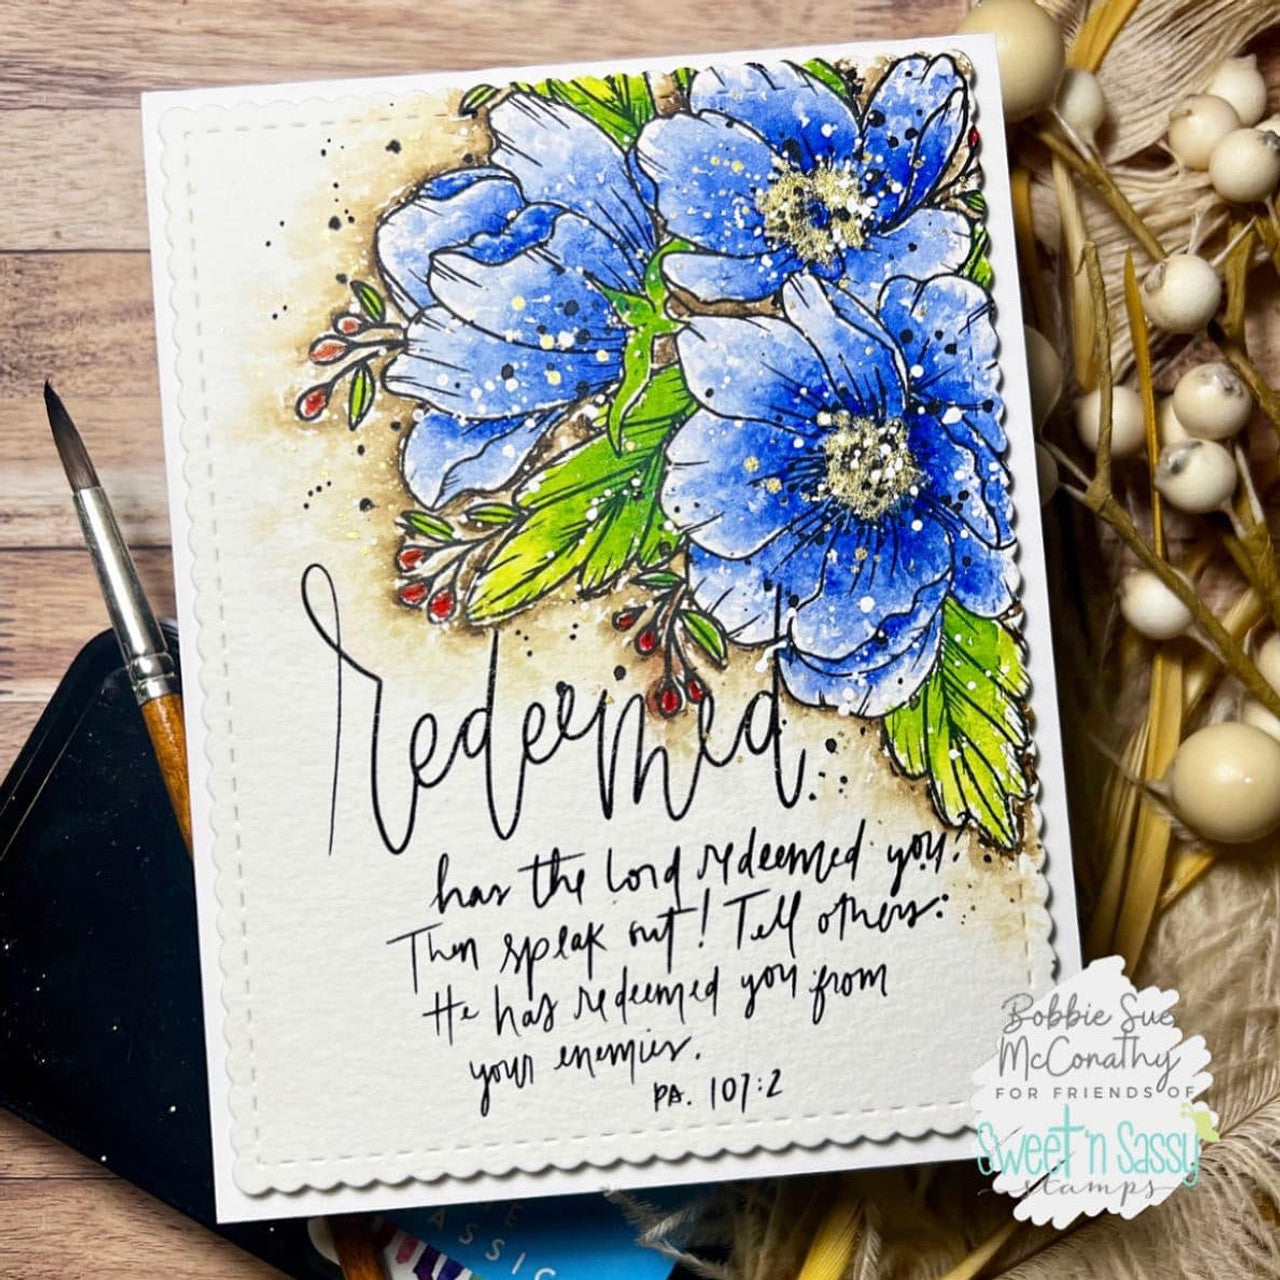 Redeemed
has the Lord redeemed you?
Then speak out! Tell others:
He has redeemed you from
your enemies.
PA. 107:2
Bobbie Sue
McConathy
FOR FRIENDS OF
Sweet 'n Sassy
stamps
ASSIC